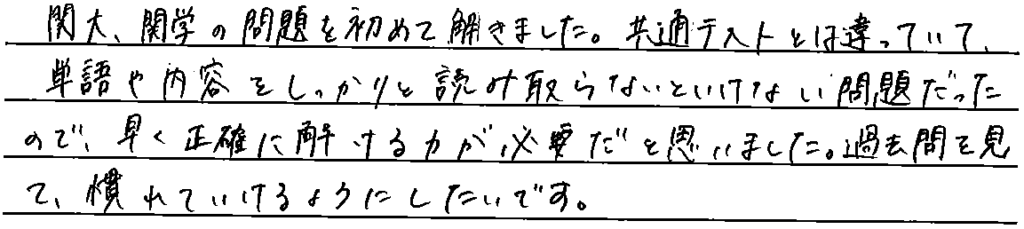 関大、関学の問題を初めて解きました。共通テストとは違っていて、
単語や内容をしっかりと読み取らないといけない問題だった
ので、早く正確に解ける力が必要だと思いました。過去問を見
て、慣れていけるようにしたいです。